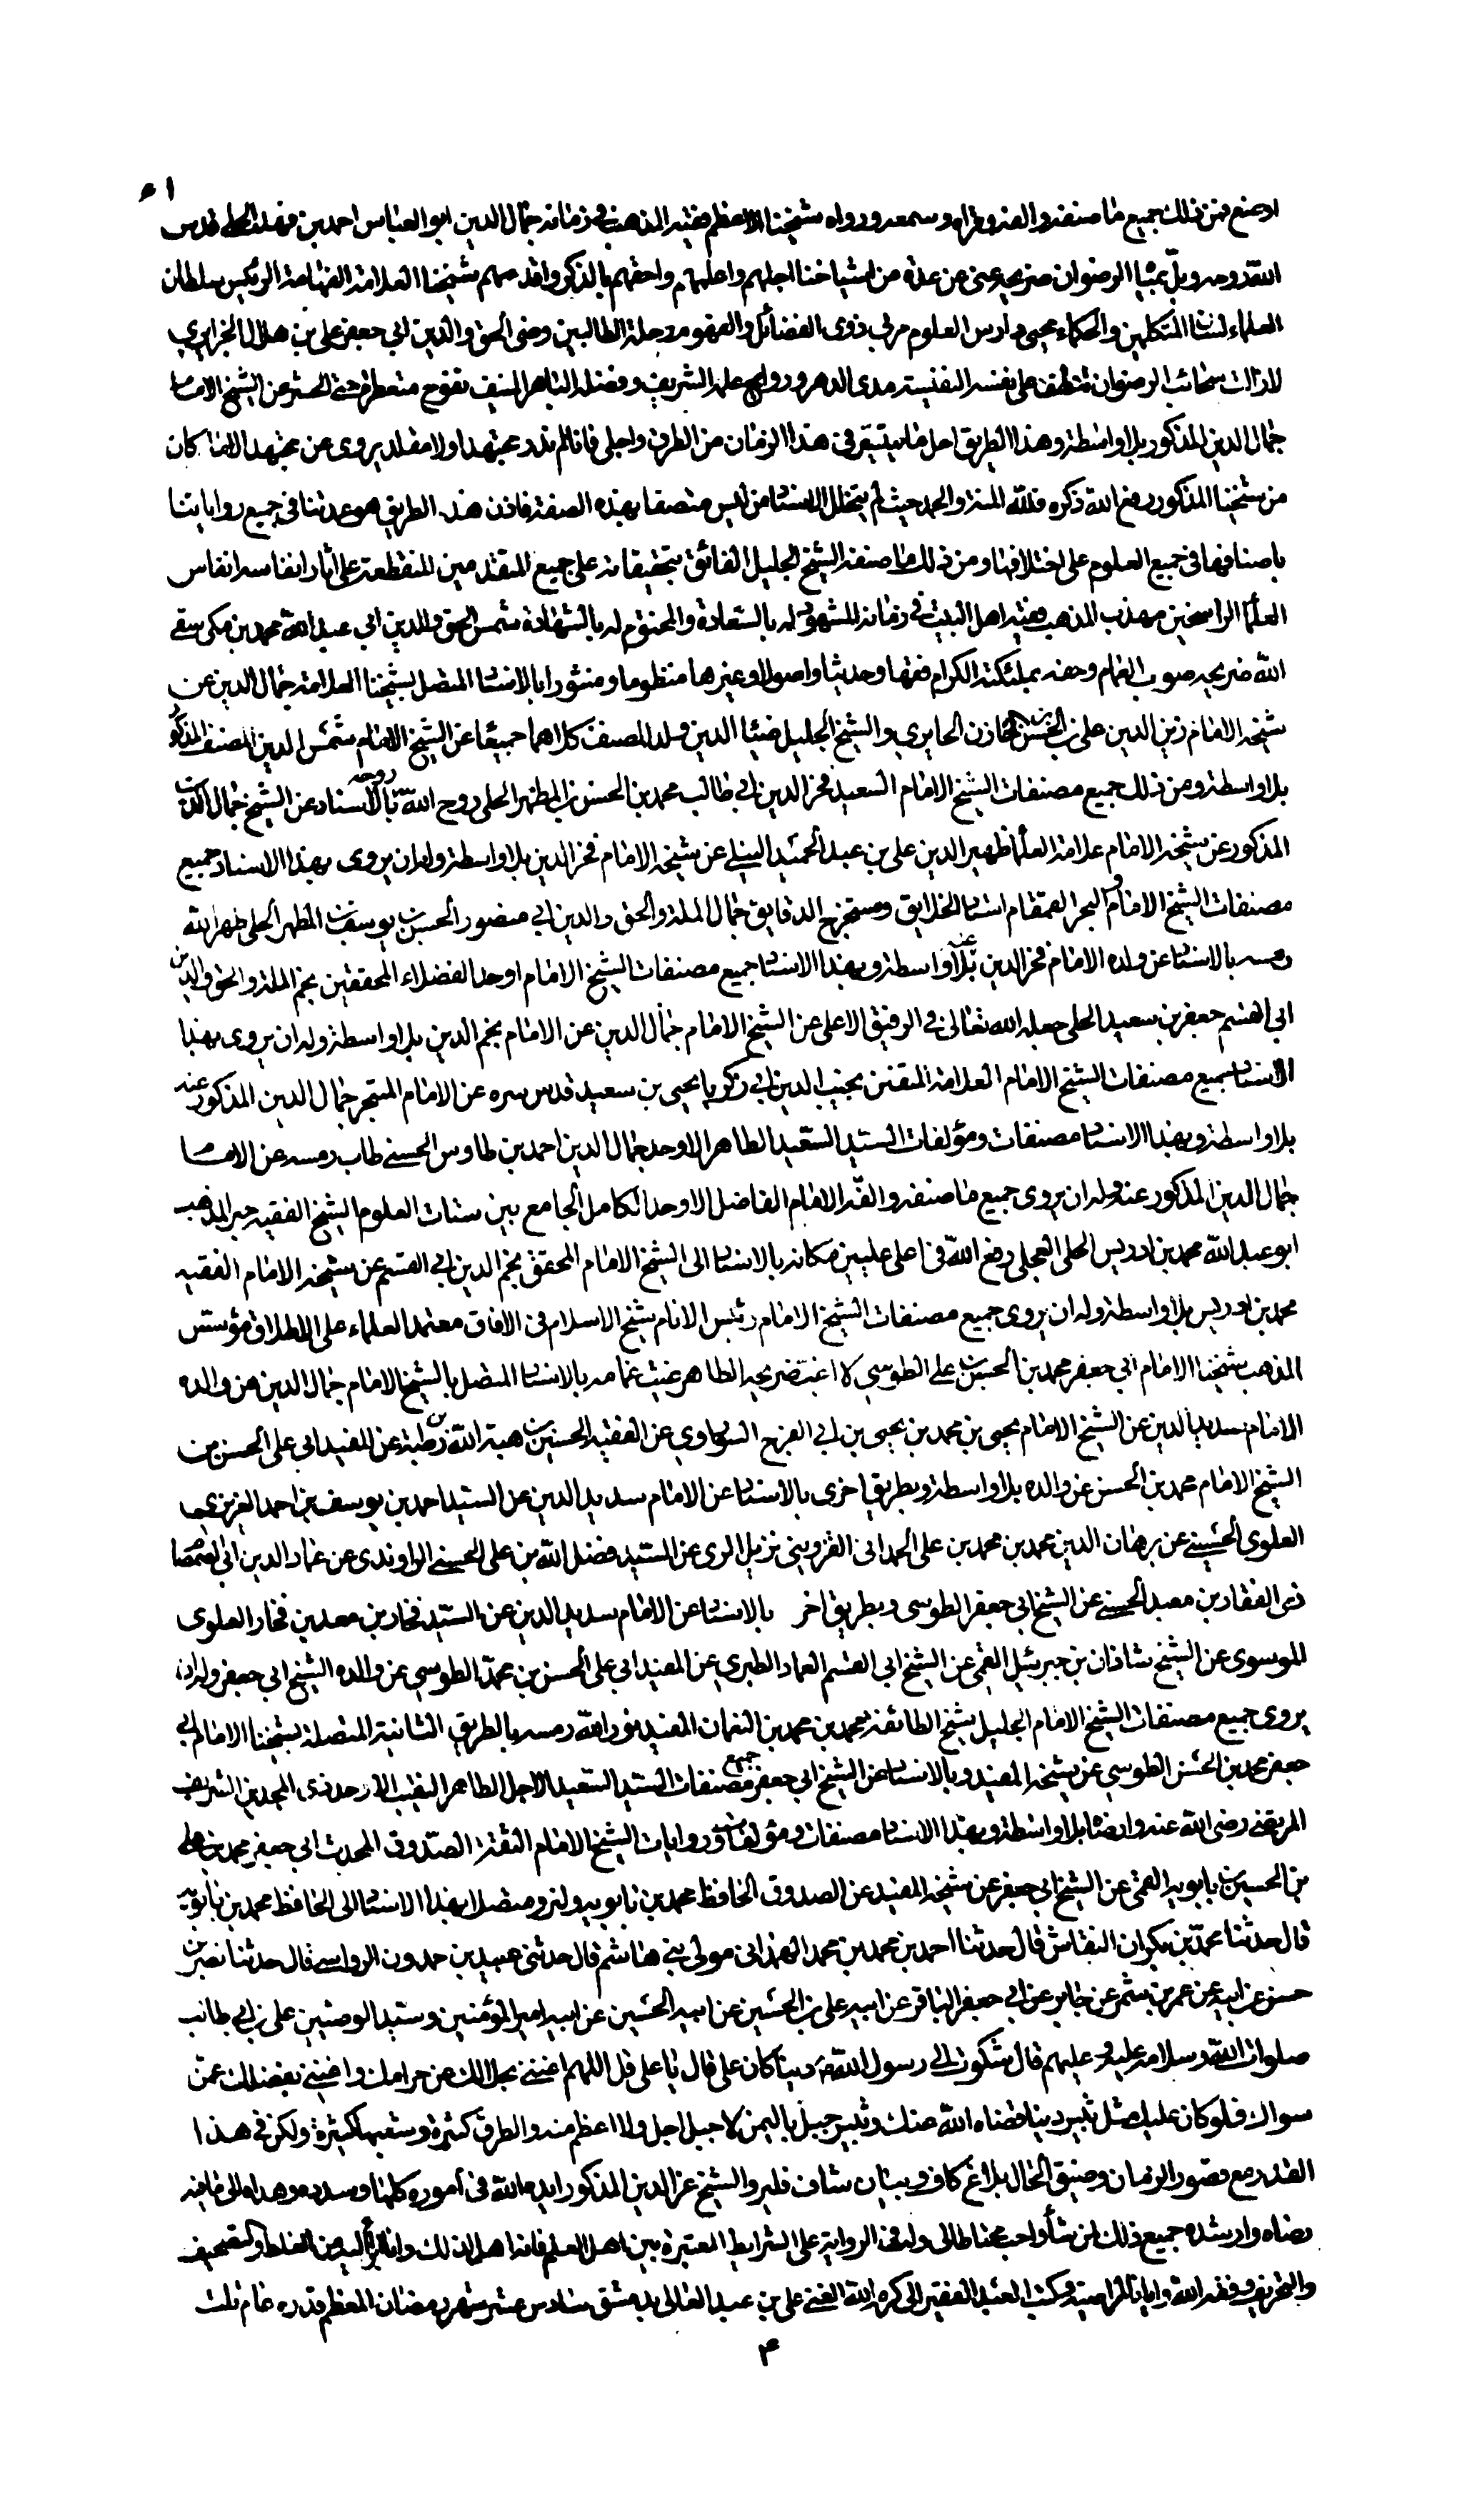 ٤١
اوضع فمن ذلك جميع ما صنفه والفه وقرأه وسمعه ورواه شيخنا الاعظم فقيه المذهب في زمانه جمال الدين ابو العباس احمد بن فهد الحلي قدس
الله روحه وبلّ بمياه الرضوان ضريحه عني عن عدة من اشياخنا اجلهم واعلمهم واحقهم بالذكر واقدمهم شيخنا العلامة الفهامة الرئيس سلطان
العلماء لسان المتكلمين والحكماء محيى مدارس العلوم مربى ذوى الفضائل والفهوم رحلة الطالبين رضى الحق والدين ابي جعفر علي بن هلال الجزايري
لازالت سحائب الرضوان تنطف على نفسه النفيسة مدى الدهر وروايح علمه الشريف وفضله الباهر المنيف تفوح متعطرة حتى الحشر عن الشيخ الامام
جمال الدين المذكور بلا واسطة وهذا الطريق اجل ما يتيسر في هذا الزمان من الطرق واجلى فانا لم ندر مجتهدا ولا مقلد يروى عن مجتهد الا ما كان
من شيخنا المذكور رفع الله ذكره فلله المنة والحمد حيث لم يتخلل الاسناد من ليس متصفا بهذه الصفة فاذن هذه الطريق هو عدتنا في جميع رواياتنا
باصنافها في جميع العلوم على اختلافها ومن ذلك ما صنفه الشيخ الجليل الفائق بتحقيقاته على جميع المتقدمين المنقطعة على اثار انفاسه انفاس
العلماء الراسخين مهذب المذهب فقيه اهل البيت في زمانه المشهود له بالسعادة والمختوم له بالشهادة شمس الحق والدين ابي عبد الله محمد بن مكي سقى
الله ضريحه صوب الغمام وحفه بملئكته الكرام فقها وحديثا واصولا وغيرها منظوما ومنثورا بالاسناد المتصل بشيخنا العلامة جمال الدين عن
شيخه الامام زين الدين علي بن الحسن بن الخازن الحايري والشيخ الجليل ضياء الدين ولد المصنف كلاهما جميعا عن الشيخ الامام شمس الدين المصنف المذكور
بلا واسطة ومن ذلك جميع مصنفات الشيخ الامام السعيد فخر الدين ابي طالب محمد بن الحسن بن المطهر الحلي روح الله روحه بالاسناد عن الشيخ جمال الدين
المذكور عن شيخه الامام علامة العلماء ظهير الدين علي بن عبد الحميد النيلي عن شيخه الامام فخر الدين بلا واسطة وله ان يروى بهذا الاسناد جميع
مصنفات الشيخ الامام والبحر القمقام استاد الخلايق ومستخرج الدقايق جمال الملة والحق والدين ابي منصور الحسن بن يوسف بن المطهر الحلي طهر الله
رمسه بالاسناد عن ولده الامام فخر الدين عنه بلا واسطة وبهذا الاسناد جميع مصنفات الشيخ الامام اوحد الفضلاء المحققين نجم الملة والحق والدين
ابي القسم جعفر بن سعيد الحلي جعله الله تعالى في الرفيق الاعلى عن الشيخ الامام جمال الدين عن الامام نجم الدين بلا واسطة وله ان يروى بهذا
الاسناد جميع مصنفات الشيخ الامام العلامة المتقن نجيب الدين ابي زكريا يحيى بن سعيد قدس سره عن الامام المتبحر جمال الدين المذكور عنه
بلا واسطة وبهذا الاسناد مصنفات ومؤلفات السيد السعيد الطاهر الاوحد جمال الدين احمد بن طاوس الحسني طاب رمسه عن الامام
جمال الدين المذكور عنه وله ان يروى جميع ما صنفه والفه الامام الفاضل الاوحد الكامل الجامع بين شتات العلوم الشيخ الفقيه حبر المذهب
ابو عبد الله محمد بن ادريس الحلي العجلي رفع الله في اعلى عليين مكانه بالاسناد الى الشيخ الامام المحقق نجم الدين ابي القسم عن شيخه الامام الفقيه
محمد بن ادريس بلا واسطة وله ان يروى جميع مصنفات الشيخ الامام رئيس الانام شيخ الاسلام في الافاق معتمد العلماء على الاطلاق مؤسّس
المذهب شيخنا الامام ابي جعفر محمد بن الحسن بن علي الطوسي لا اغب ضريحه الطاهر غيث غمامه بالاسناد المتصل بالشيخ الامام جمال الدين عن والده
الامام سديد الدين عن الشيخ الامام يحيى بن محمد بن يحيى بن ابي الفرج السوراوي عن الفقيه الحسين بن هبة الله بن رطبة عن المفيد ابي علي الحسن بن
الشيخ الامام محمد بن الحسن عن والده بلا واسطة وبطريق اخرى بالاسناد عن الامام سديد الدين عن السيد احمد بن يوسف بن احمد العريضي
العلوى الحسيني عن برهان الدين محمد بن محمد بن علي الحمداني القزويني نزيل الرى عن السيد فضل الله بن علي الحسني الراوندى عن عماد الدين ابي الصمصام
ذى الفقار بن معبد الحسني عن الشيخ ابي جعفر الطوسي وبطريق اخر بالاسناد عن الامام سديد الدين عن السيد فخار بن معد بن فخار العلوى
الموسوى عن الشيخ شاذان بن جبرئيل القمي عن الشيخ ابي القسم العماد الطبري عن المفيد ابي علي الحسن بن محمد الطوسي عن والده الشيخ ابي جعفر وله ان
يروى جميع مصنفات الشيخ الامام الجليل شيخ الطائفة محمد بن محمد بن النعمان المفيد نور الله رمسه بالطريق الثانية المتصلة بشيخنا الامام ابي
جعفر محمد بن الحسن الطوسي عن شيخه المفيد وبالاسناد عن الشيخ ابي جعفر جميع مصنفات السيد السعيد الاجل الطاهر النقيب الاوحد ذى المجدين الشريف
المرتضى رضى الله عنه وارضاه بلا واسطة وبهذا الاسناد مصنفات ومؤلفات وروايات الشيخ الامام الثقة الصدوق المحدث ابي جعفر محمد بن علي
بن الحسين بن بابويه القمي عن الشيخ ابي جعفر عن شيخه المفيد عن الصدوق الحافظ محمد بن بابويه ولنرو متصلا بهذا الاسناد الى الحافظ محمد بن بابويه
قال حدثنا محمد بن بكران النقاش قال حدثنا احمد بن محمد بن محمد الهمداني مولى بني هاشم قال حدثني عبيد بن حمدون الرواسي قال حدثنا نصر بن
حسن عن ابيه عن عمر بن شمر عن جابر عن ابي جعفر الباقر عن ابيه علي بن الحسين عن ابيه الحسين عن ابيه امير المؤمنين وسيد الوصيين علي بن ابي طالب
صلوات الله وسلامه عليه وعليهم قال شكوت الى رسول الله ص دينا كان علي فقال يا علي قل اللهم اغنني بحلالك عن حرامك واغنني بفضلك عمن
سواك فلو كان عليك مثل ثبير دينا قضاه الله عنك وثبير جبل باليمن لا جبل اجل ولا اعظم منه والطرق كثيرة وشعبها كثيرة ولكن في هذا
القدر مع قصور الزمان وضيق الحال بلاغ كاف وبيان شاف فليرو الشيخ عز الدين المذكور ايده الله في أموره كلها وسدده وهداه الى ما فيه
رضاه وارشده جميع ذلك لمن شاء واحب محتاطا لى وله في الرواية على الشرايط المعتبرة بين اهل العلم فانه اهل لذلك وانا ابرأ اليه من الغلط والتصحيف
والتحريف وفقه الله وايانا لمراضيه وكتب العبد الفقير الى كرم الله الغني علي بن عبد العالى بدمشق سادس عشر شهر رمضان المعظم قدره عام ثلث
٣